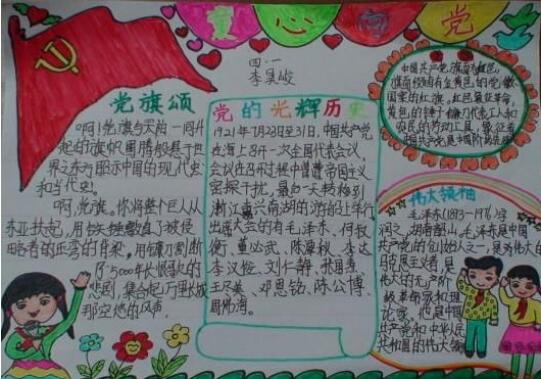 童心向党
四·一
李昊峻
党旗颂
啊!党旗与天际一同升
起的旗帜图腾般悬于世
界之东方昭示中国的现代史
和当代史。
啊,党旗。你将整个巨人从
东亚扶起,用铁锤
略者的
了5000年长恨歌的
悲剧,集合起万里长城
那空旷的风声
党的光辉历史
1921年7月23日至31日,中国共产党
在上海召开一次全国代表会议,
会议在召开过程中曾遭帝国主义
密探干扰,最后一天转移到
浙江嘉兴南湖的游船上举行
出席大会的有毛泽东、何叔
衡、董必武、陈潭秋、李达
李汉俊、刘仁静、张国焘、
王尽美、邓恩铭、陈公博、
周佛海。
中国共产党旗面为红色,
国家的红旗,红色象征革命,
黄色的锤子镰刀代表工人和
农民的劳动工具,象征着
中国共产党是中国工人阶级先锋队
伟大领袖
毛泽东(1893-1976)字
润之,湖南韶山,毛泽东是中国
共产党的创始人之一,是为伟大的
马克思主义者,是
伟大的无产阶
级革命家和理
论家,也是中国
共产党和中华人民
共和国的伟大领